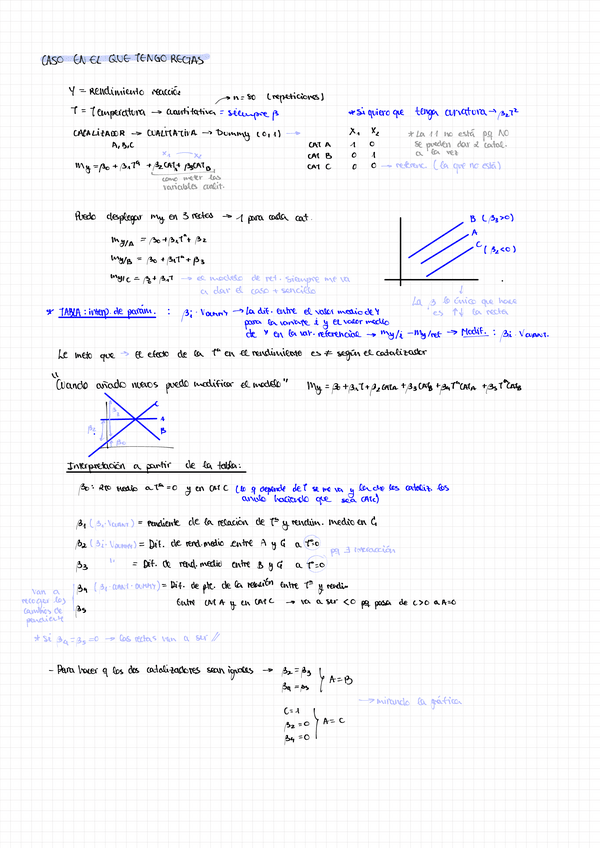 CASO EN EL QUE TENGO RECTAS
Y = Rendimiento reacción
→ n = 80 (repeticiones)
T = Temperatura → cuantitativa = siempre β
* Si quiero que tenga curvatura → β₂T²
CATALIZADOR → CUALITATIVA → Dummy (0,1) →
A, B, C
X₁ X₂
CAT A 1 0
CAT B 0 1
CAT C 0 0 → referenc. (la que no está)
* La 11 no está pq NO
se pueden dar 2 catal.
a la vez
X₁ X₂
My = β₀ + β₁Tª + β₂CATA + β₃CATB
como meter las
variables cualit.
Puedo desplegar my en 3 rectas → 1 para cada cat.
my/A = β₀ + β₁Tª + β₂
my/B = β₀ + β₁Tª + β₃
my/C = β₀ + β₁T → el modelo de ref. siempre me va
a dar el caso + sencillo
B (β₃>0)
A
C (β₂<0)
La β lo único que hace
es ↑↓ la recta
* TABLA: interp. de parám. : βi · Vannr → La dif. entre el valor medio de Y
para la variante i y el valor medio
de Y en la var. referencial → my/i − my/ref → Modif. : βi · Vannr.
Le meto que → El efecto de la Tª en el rendimiento es ≠ según el catalizador
"Cuando añado nuevos puedo modificar el modelo"
My = β₀ + β₁T + β₂CATA + β₃CATB + β₄TªCATA + β₅TªCATB
C
A
B
β₂
β₀
Interpretación a partir de la tabla:
β₀ : zto medio a Tª=0 y en CAT C (lo q depende de T se me va y la dto los cataliz. los
anulo haciendo que sea CATC)
β₁ (βi · Vannr) = Pendiente de la relación de Tª y rendim. medio en C
β₂ (βi · Vannr) = Dif. de rend. medio entre A y C a Tª=0
pq ∃ interacción
β₃ " = Dif. de rend. medio entre B y C a Tª=0
β₄ = Dif. de pte. de la relación entre Tª y rendim
Entre CAT A y en CAT C → va a ser <0 pq pasa de C>0 a A=0
β₅
van a
recoger los
cambios de
pendiente
* Si β₄ = β₅ = 0 → las rectas van a ser //
- Para hacer q los dos catalizadores sean iguales → β₂ = β₃
β₄ = β₅
A = B
→ mirando la gráfica
C = 1
β₂ = 0
β₄ = 0
A = C